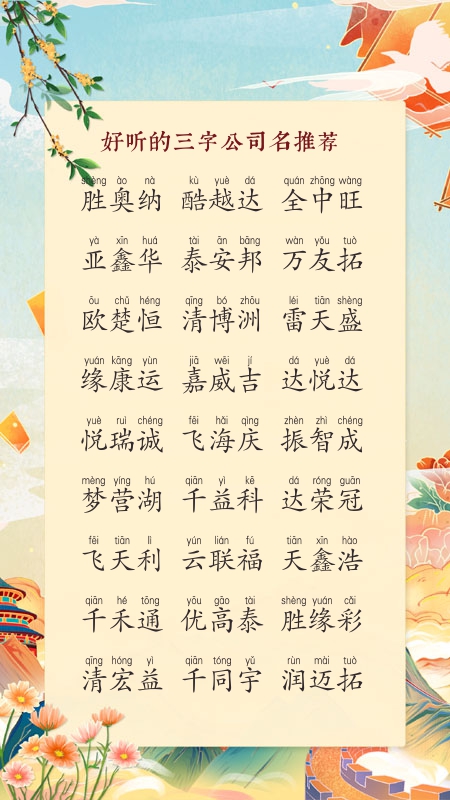 好听的三字公司名推荐
shèng ào nà kù yuè dá quán zhōng wàng
胜奥纳 酷越达 全中旺
yà xīn huá tài ān bāng wàn yǒu tuò
亚鑫华 泰安邦 万友拓
ōu chǔ héng qīng bó zhōu léi tiān shèng
欧楚恒 清博洲 雷天盛
yuán kāng yùn jiā wēi jí dá yuè dá
缘康运 嘉威吉 达悦达
yuè ruì chéng fēi hǎi qìng zhèn zhì chéng
悦瑞诚 飞海庆 振智成
mèng yíng hú qiān yì kē dá róng guān
梦营湖 千益科 达荣冠
fēi tiān lì yún lián fú tiān xīn hào
飞天利 云联福 天鑫浩
qiān hé tōng yōu gāo tài shèng yuán cǎi
千禾通 优高泰 胜缘彩
qīng hóng yì qiān tóng yǔ rùn mài tuò
清宏益 千同宇 润迈拓